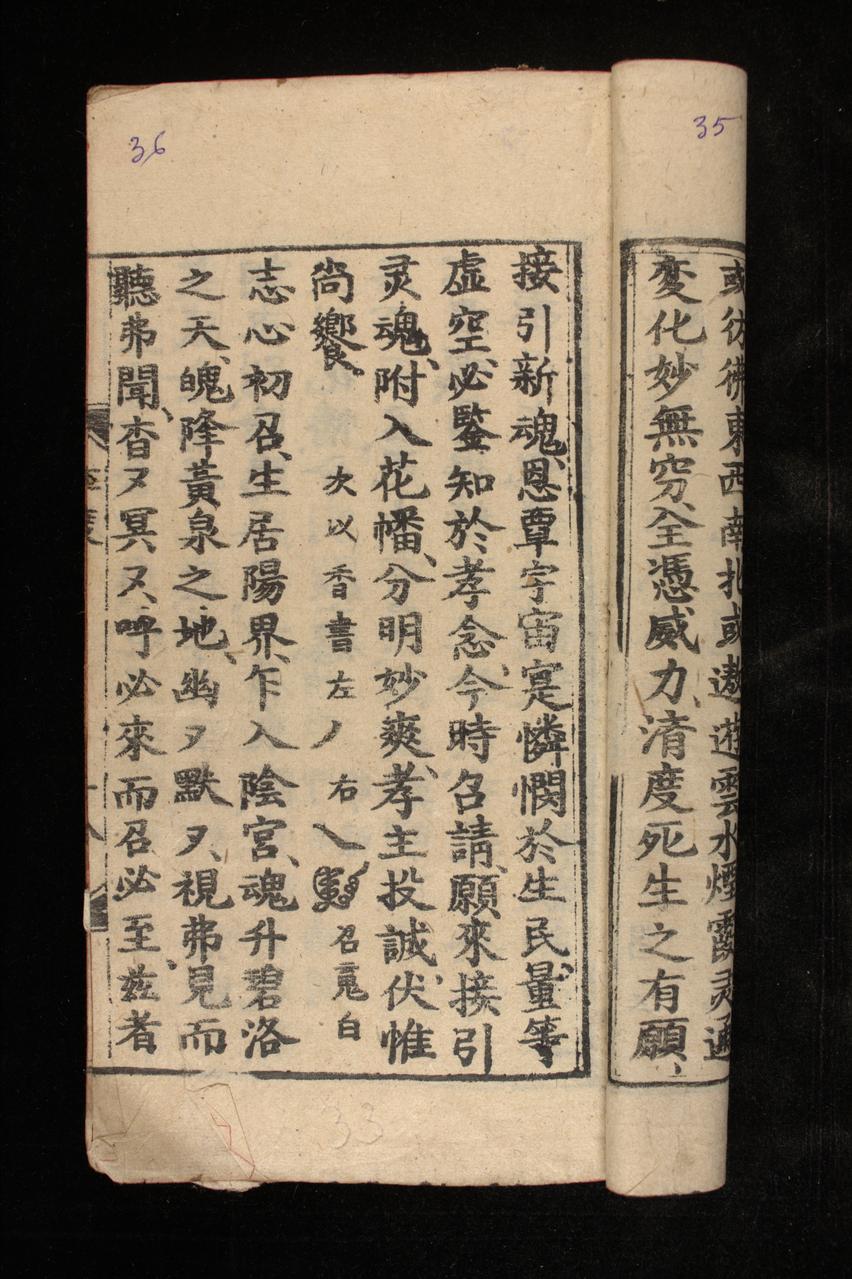 35
或彷彿東西南北或遨遊雲水煙霞灵通
変化妙無穷、全憑威力、清度死生之有願、
36
接引新魂、恩覃宇宙寔憐憫於生民、量等
虚空、必鑒知於孝念、今時召請、願來接引
灵魂、附入花幡、分明妙爽、孝主投誠、伏惟
尚饗、 次以香書左丿右乀 召䰟白
志心初召、生居陽界、乍入陰宮、魂升碧洛
之天、魄降黃泉之地、幽ヌ默ヌ、視弗見而
聽弗聞、杳ヌ冥ヌ、呼必來而召必至、兹者
33